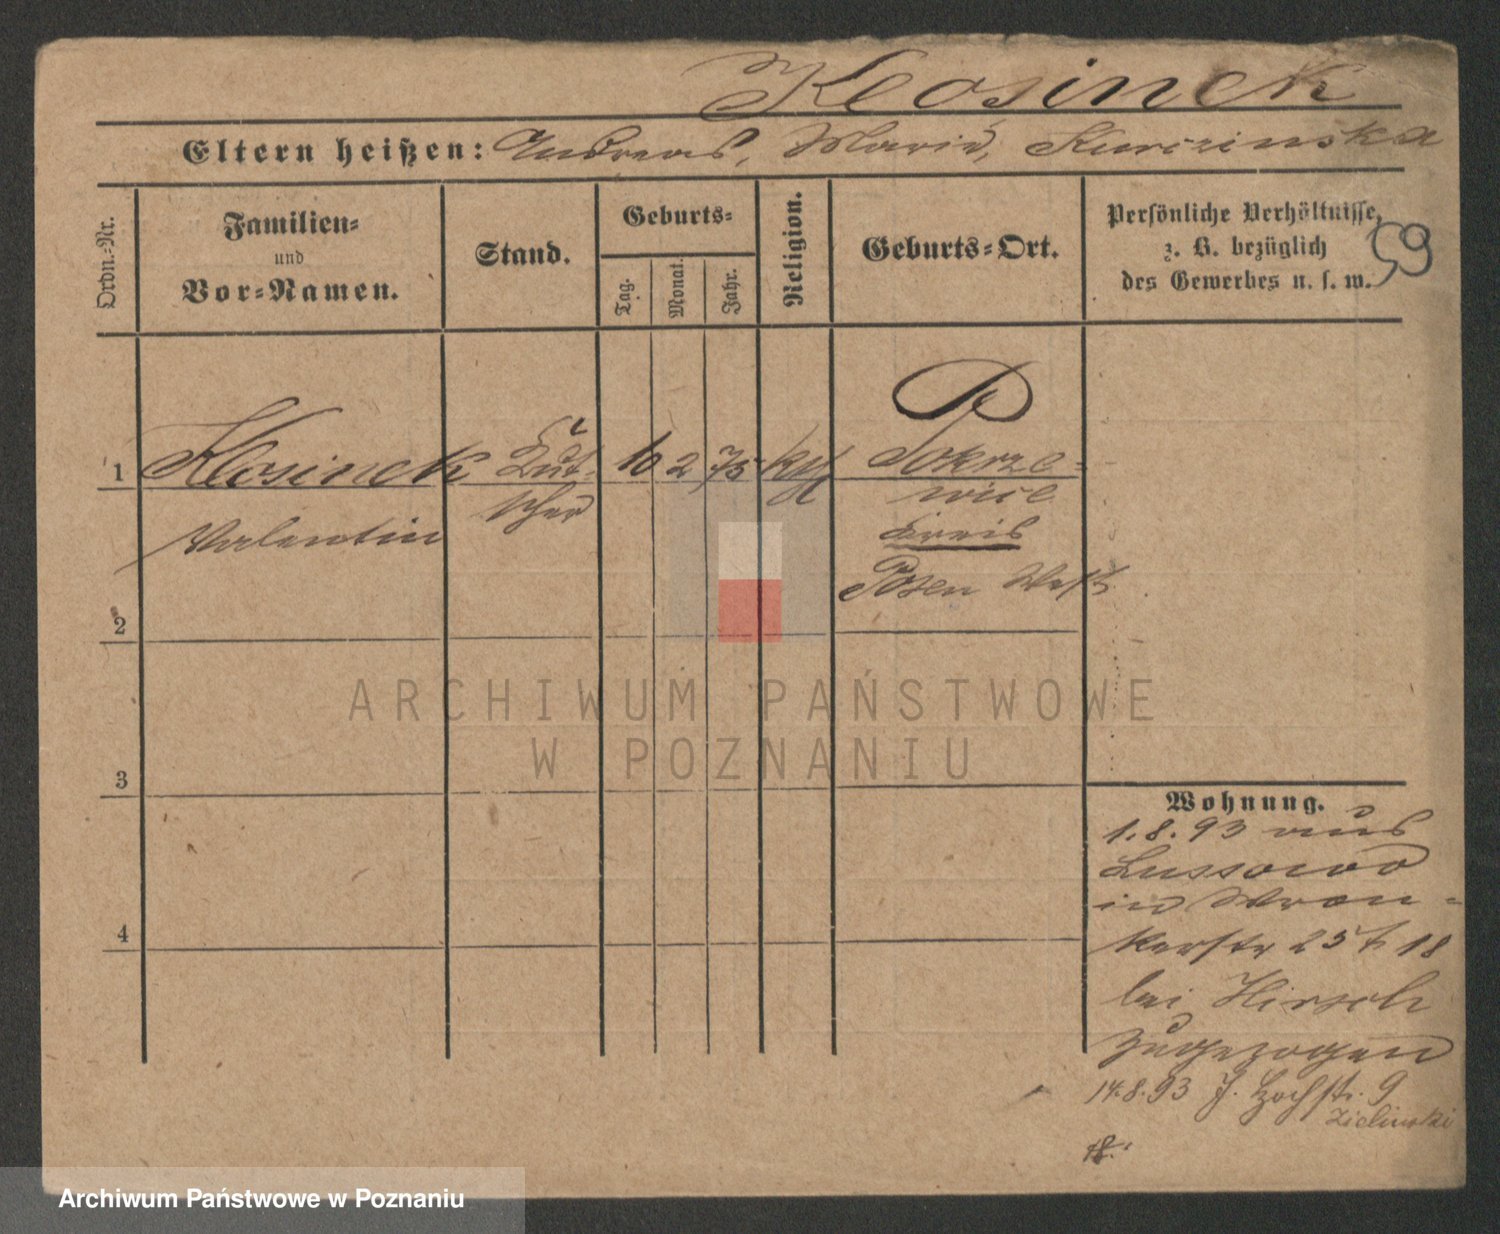 Klosinek
Eltern heißen: Andreas, Marie, Kurczinska
Ordn.-Nr.
Familien-
und
Vor-Namen.
Stand.
Geburts-
Tag.
Monat.
Jahr.
Religion.
Geburts-Ort.
Persönliche Verhältnisse,
z. B. bezüglich
des Gewerbes u. s. w.
59
P
1 Klosinek Kut- 10 2 75 kth
Valentin scher
Sokrze-
wice
Kreis
Posen West
2
3
4
Wohnung.
1.8.93 aus
Lussowo
in Wron-
kerstr 25 t. 18
bei Hirsch
zugezogen
14.8.93 J. Hochstr. 9
Zielinski
ARCHIWUM PAŃSTWOWE
W POZNANIU
Archiwum Państwowe w Poznaniu